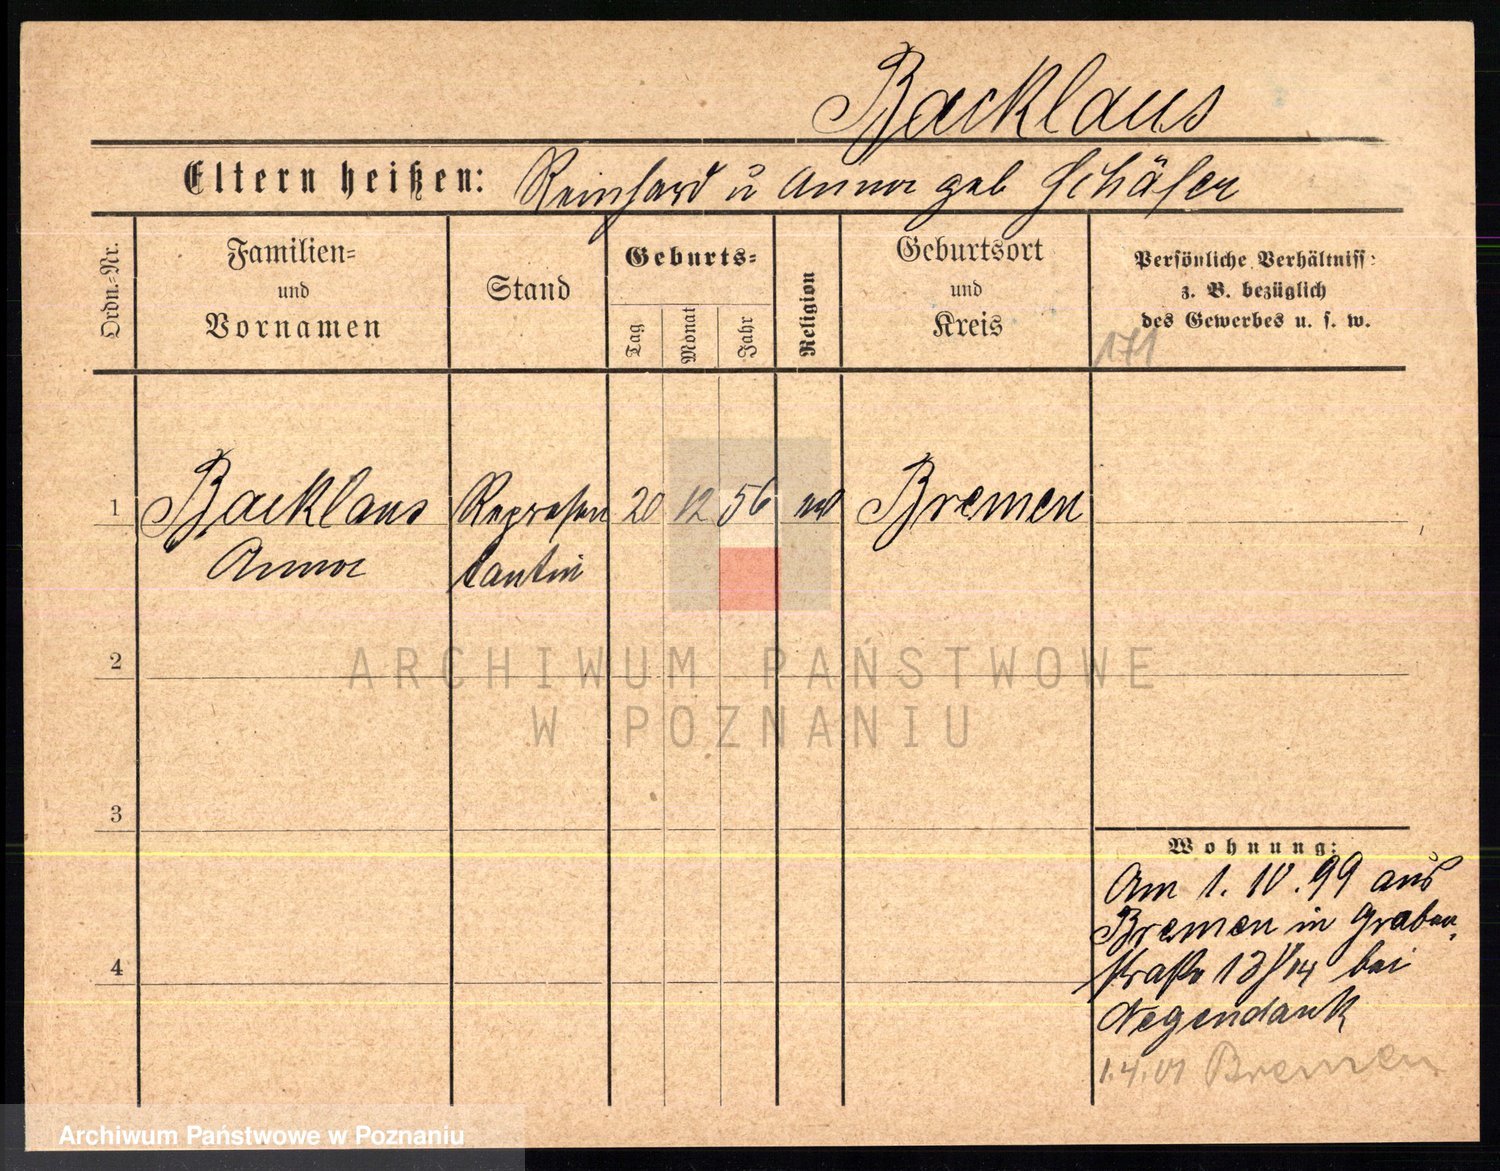 Backlaus
Eltern heißen: Reinhard u Anna geb Schäfer
Ordn.-Nr.
Familien-
und
Vornamen
Stand
Geburts-
Tag
Monat
Jahr
Religion
Geburtsort
und
Kreis
Persönliche Verhältniss:
z. B. bezüglich
des Gewerbes u. s. w.
171
1 Backlaus Represen 20 12 56 ev Bremen
Anna tantin
2
ARCHIWUM PAŃSTWOWE
W POZNANIU
3
Wohnung:
Am 1.10.99 aus
Bremen in Graben-
4
straße 13/14 bei
Negendank
1.4.01 Bremen
Archiwum Państwowe w Poznaniu